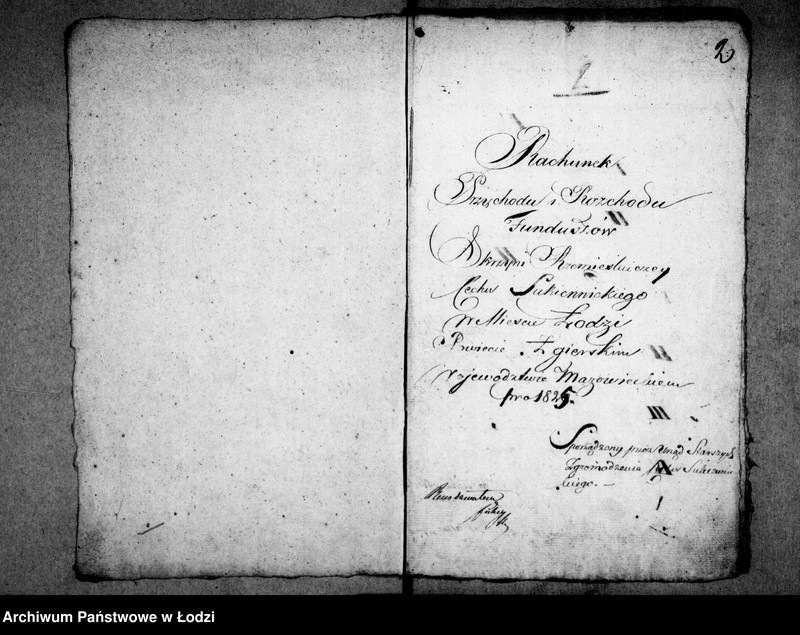 2
2
Rachunek
Przychodu i Rozchodu
Funduszów
Skrzyni Rzemieślniczey
Cechu Sukiennickiego
W Mieście Łodzi
Powiecie Zgierskim
Wojewodztwie Mazowieckiem
pro 1825.
Sporządzony przez Urząd Starszych
Zgromadzenia Sukienni
kiego. —
Archiwum Państwowe w Łodzi